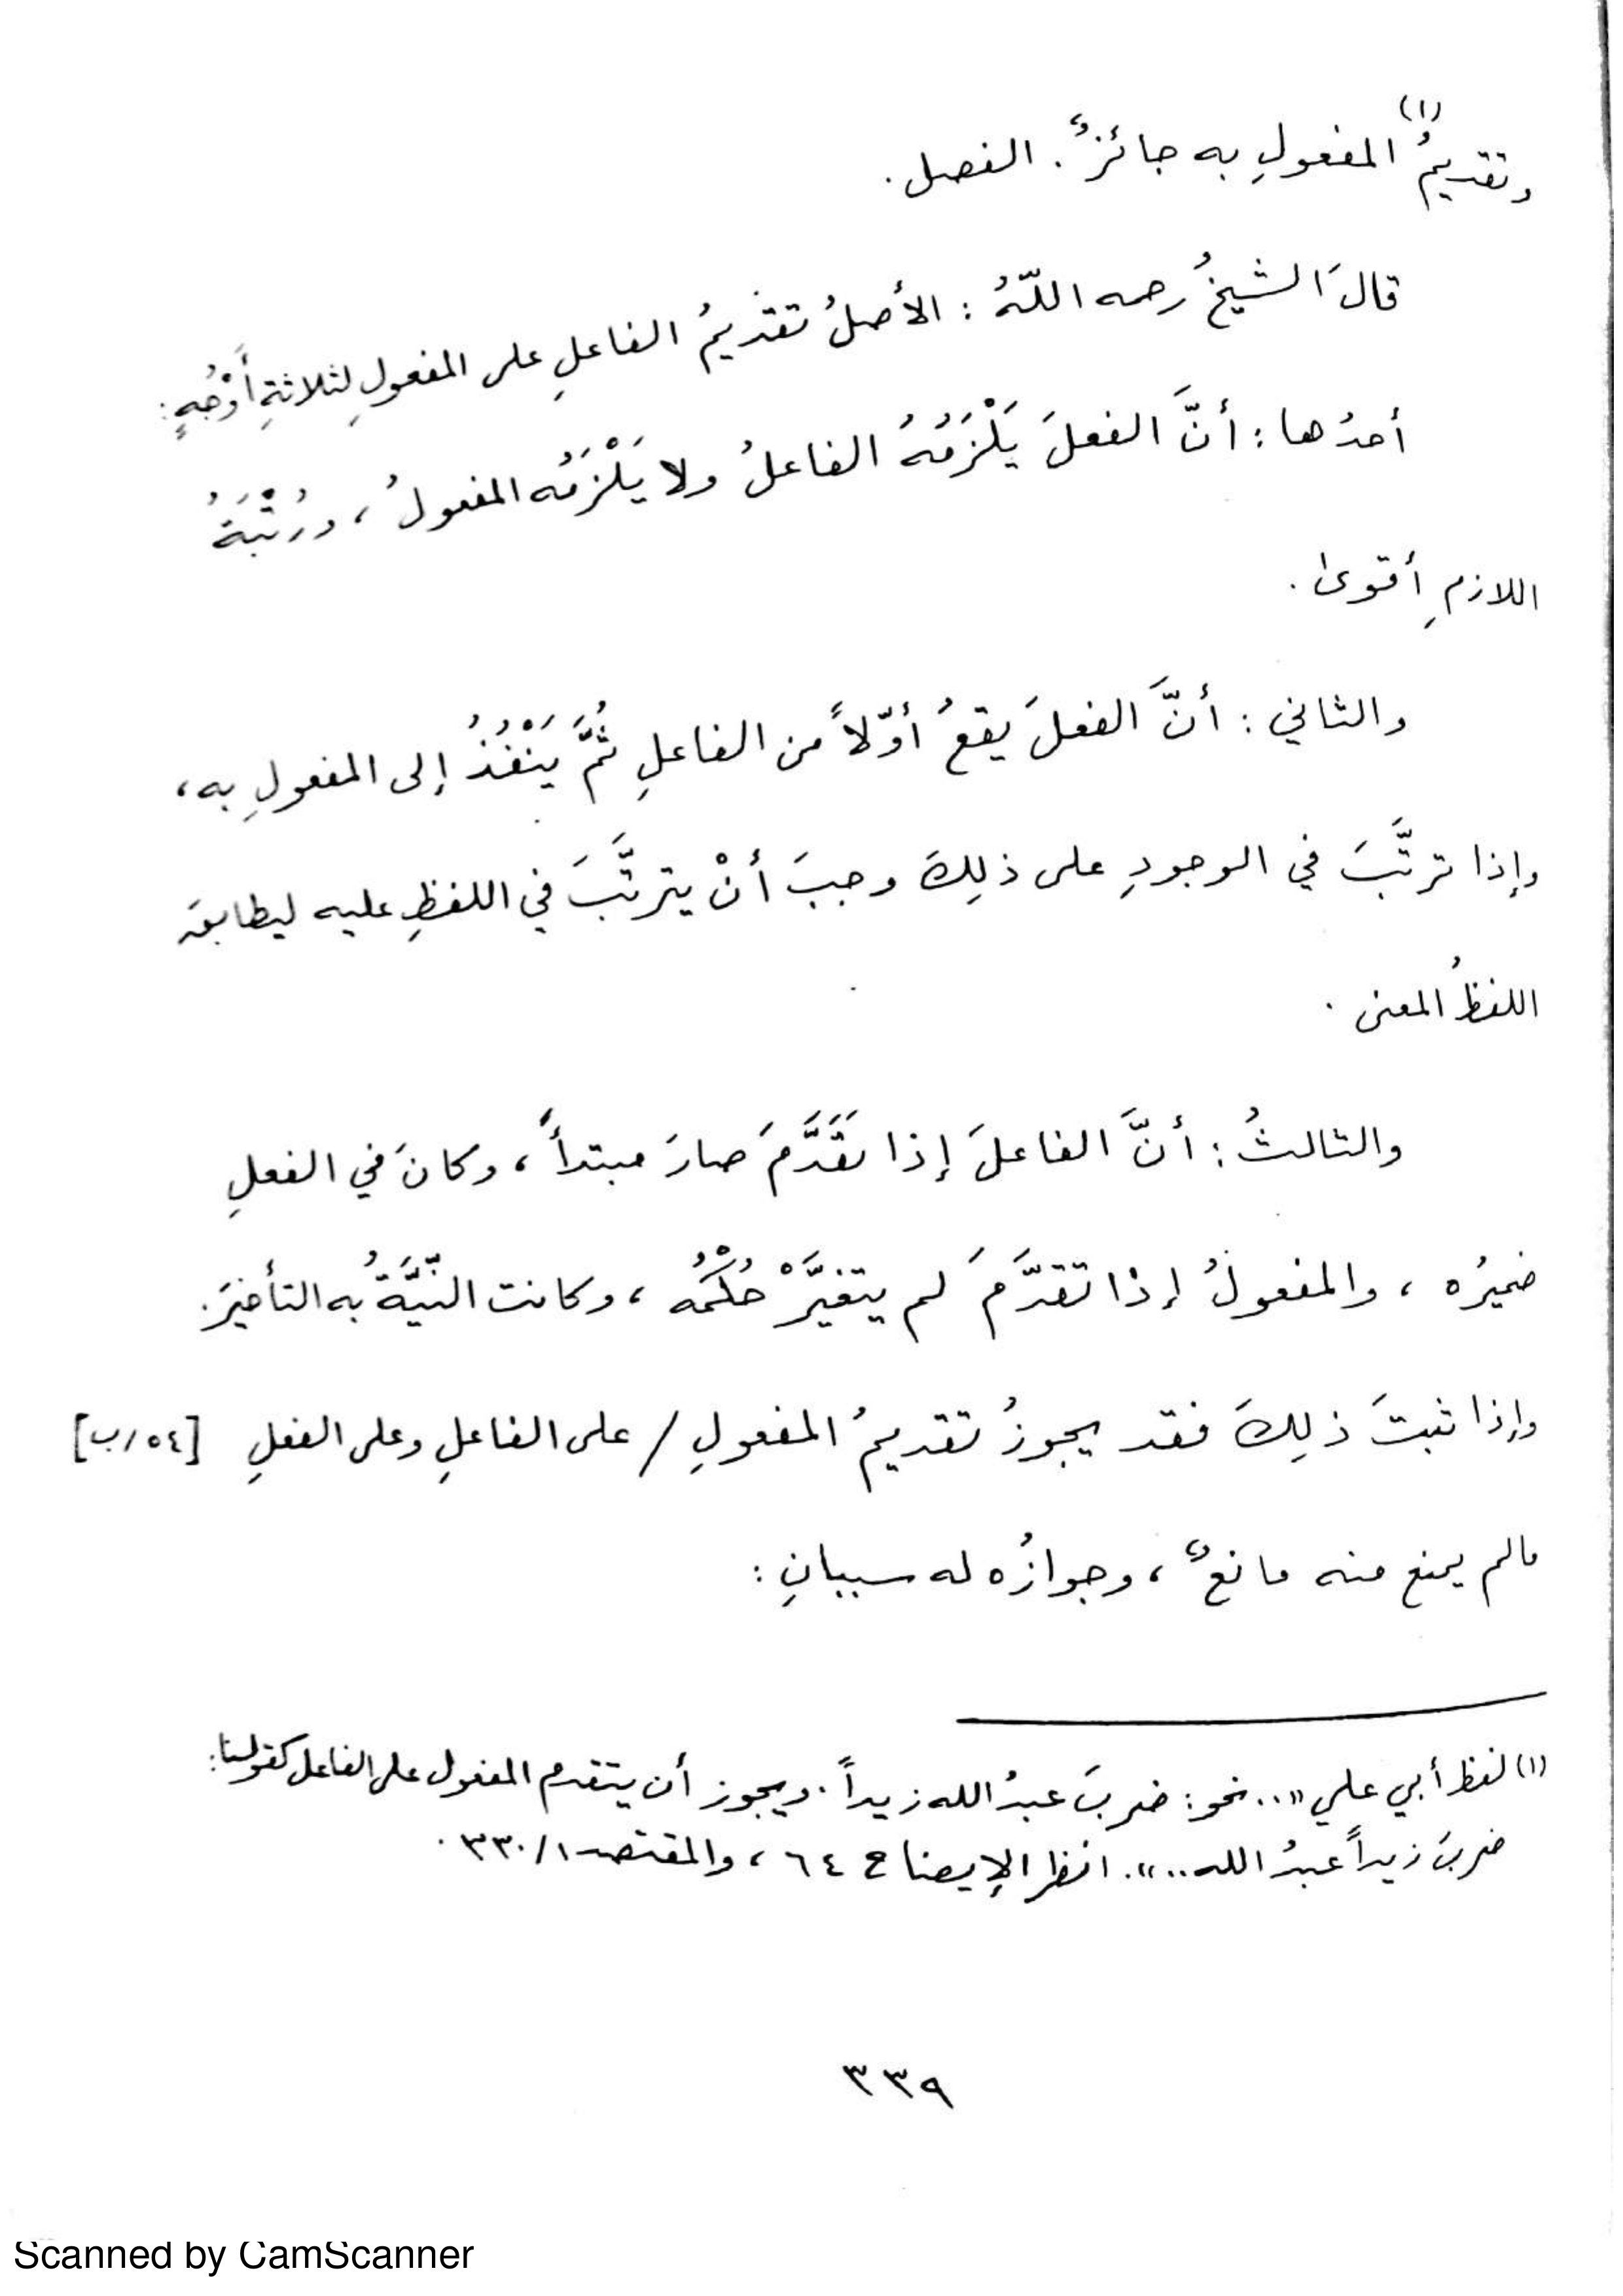 وتقديمُ(١) المفعولِ به جائزٌ . الفصل .
قالَ الشيخُ رحمه اللّهُ : الأصلُ تقديمُ الفاعلِ على المفعولِ لثلاثةِ أَوْجُهٍ :
أحدُها : أنَّ الفعلَ يَلْزَمُهُ الفاعلُ ولا يَلْزَمُه المفعولُ ، ورُتْبَةُ
اللازمِ أقوىٰ .
والثاني : أنَّ الفعلَ يقعُ أوّلاً من الفاعلِ ثُمَّ يَنْفُذُ إلى المفعولِ به ،
وإذا ترتَّبَ في الوجودِ على ذلِكَ وجبَ أنْ يترتَّبَ في اللفظِ عليه ليطابقَ
اللفظُ المعنى .
والثالثُ : أنَّ الفاعلَ إذا تَقَدَّمَ صارَ مبتدأً ، وكانَ في الفعلِ
ضميرُه ، والمفعولُ إذا تقدَّمَ لم يتغيَّرْ حُكْمُه ، وكانت النِّيَّةُ به التأخيرَ .
وإذا ثبتَ ذلِكَ فقد يجوزُ تقديمُ المفعولِ / على الفاعلِ وعلى الفعلِ [٥٤/ب]
مالم يمنع منه مانعٌ ، وجوازُه له سببانِ :
(١) لفظ أبي علي «.. نحو : ضربَ عبدُ الله زيداً . ويجوز أن يتقدم المفعول على الفاعل كقولنا :
ضربَ زيداً عبدُ الله ..» . انظر الإيضاح ٦٤ ، والمقتصد ١/٣٣٠ .
٣٣٩
Scanned by CamScanner